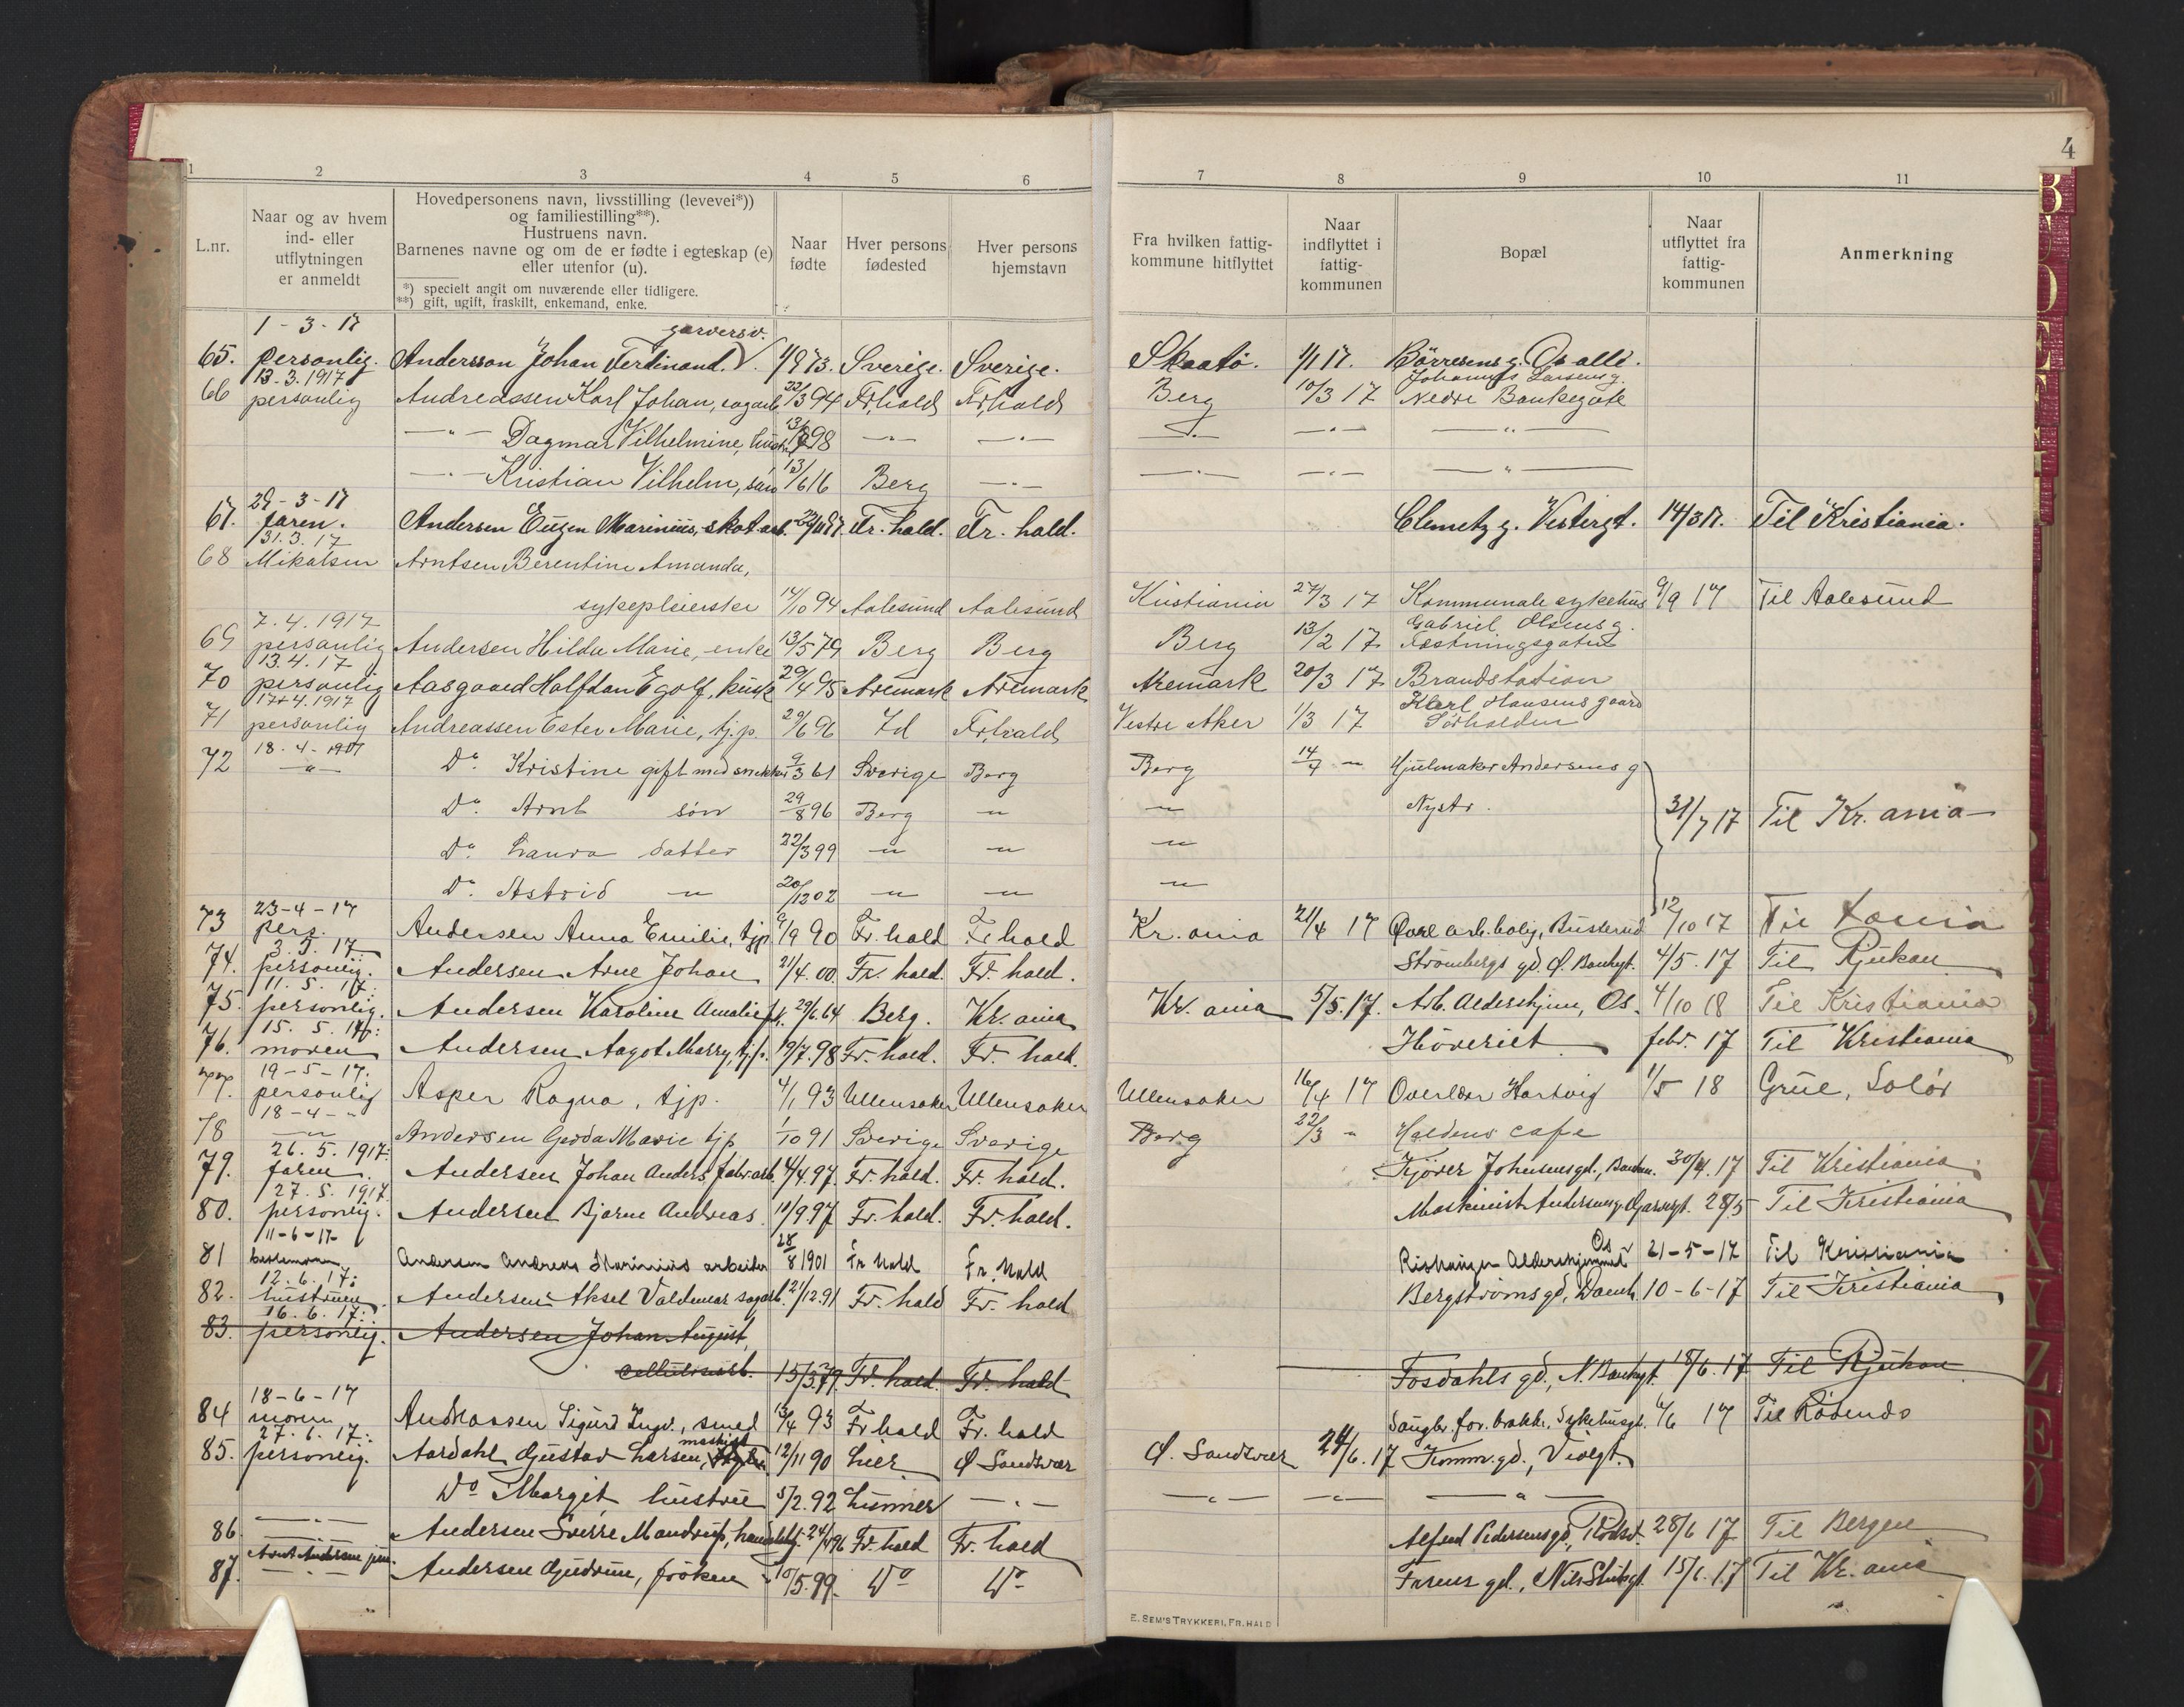 4
1 2 3 4 5 6 7 8 9 10 11
L.nr.
Naar og av hvem
ind- eller
utflytningen
er anmeldt
Hovedpersonens navn, livsstilling (levevei*))
og familiestilling**).
Hustruens navn.
Barnenes navne og om de er fødte i egteskap (e)
eller utenfor (u).
*) specielt angit om nuværende eller tidligere.
**) gift, ugift, fraskilt, enkemand, enke.
Naar
fødte
Hver persons
fødested
Hver persons
hjemstavn
Fra hvilken fattig-
kommune hitflyttet
Naar
indflyttet i
fattig-
kommunen
Bopæl
Naar
utflyttet fra
fattig-
kommunen
Anmerkning
1-3-17 garversv.
65. personlig. Andersson Johan Ferdinand. 1/9 73. Sverige. Sverige. Skaatö. 1/1 17. Börresens g. Os allé.
13.3.1917 Johannes Larsens g.
66 personlig Andreassen Karl Johan, sagarb. 22/3 94 Fr.hald Fr.hald Berg 10/3 17 Nedre Bankegate
—"— Dagmar Vilhelmine, hustr. 98 —"— —"— —"— —"— —"—
—"— Kristian Vilhelm, sön 13/6 16 Berg —"— —"— —"— —"—
29-3-17
67. faren. Andersen Eugen Marinius, skotarb. Fr. hald. Fr. hald. Clemetz g. Vestergt. 14/3 17. Til Kristiania.
31.3.17
68 Mikalsen Arntsen Berentine Amanda,
sykepleierske 14/10 94 Aalesund Aalesund Kristiania 27/3 17 Kommunale sykehus 9/9 17 Til Aalesund
7.4.1917 Gabriel Olsens g.
69 personlig Andersen Hilda Marie, enke 13/5 79 Berg Berg Berg 13/2 17 Fæstningsgaten
13.4.17
70 personlig Aasgaard Halfdan Egolf, kusk 29/4 95 Aremark Aremark Aremark 20/3 17 Brandstation
17/4.1917 Karl Hansens gaard
71 personlig Andreassen Ester Marie, tj.p. 29/6 96 Id Fr.hald Vestre Aker 1/3 17 Sörhalden
18-4-1917
72 —"— Do. Kristine gift med snekker 9/3 61 Sverige Berg Berg 14/4 — Hjulmaker Andersens g
Do. Arnt sön 29/8 96 Berg —"— —"— Nystr. 31/7 17 Til Kr.ania
Do. Laura datter 22/3 99 —"— —"— —"—
Do. Astrid —"— 20/12 02 —"— —"— —"—
23-4-17
73 pers. Andersen Anna Emilie, tjp 9/9 90 Fr.hald Fr.hald Kr.ania 21/4 17 arb.bolig, Busterud 12/10 17 Til Kr.ania
3.5.17
74. personlig. Andersen Arne Johan 21/4.00. Fr. hald. Fr. hald. Strömbergs gd. Ø. Bankgt. 4/5.17 Til Rjukan
11.5.17.
75. personlig. Andersen Karoline Amalie 29/6.64 Berg. Kr.ania Kr.ania 5/5.17. Arb. Aldershjem, Os. 4/10 18 Til Kristiania
15.5.17:
76. moren Andersen Aagot Marry, tj.p. 19/7.98 Fr. hald. Fr. hald. Höveriet febr. 17 Til Kristiania
19-5-17.
77. personlig Asper Ragna, tjp. 4/1 93 Ullensaker Ullensaker Ullensaker 16/4 17 Overlær Hartvig 1/5 18 Grue, Solör
18-4-"
78 —"— Andersen Gerda Marie tjp /10 91 Sverige Sverige Berg 22/3 " Haldens cafe
26.5.1917.
79. faren. Andersen Johan Anders, fabr.arb. 4/4.97. Fr. hald. Fr. hald. Kjörer Johnsens gd., 30/4.17 Til Kristiania.
27.5.1917.
80. personlig. Andersen Bjarne Andreas 11/9.97 Fr. hald. Fr. hald. Maskinist Andersens g. Garvergt. 28/5 Til Kristiania
11-6-17 Os
81 Andersen Andreas Marinius arbeider 28/8 1901 Fr hald Fr. hald Aldershjemmet 21-5-17 Til Kristiania
12.6.17.
82. hustruen Andersen Aksel Valdemar sagarb. 21/12.91 Fr. hald Fr. hald Bergströms gd, Damh. 10-6-17 Til Kristiania
16.6.17.
83. personlig. Andersen Johan August,
cellulosearb. 15/3.79. Fr. hald. Fr. hald Fosdahls gd., N. Bankgt. 18/6.17 Til Rjukan
18-6-17
84 moren Andreassen Sigurd Ingv., smed 13/4 93 Fr hald Fr. hald Saugbr. for. brakke, Sykehusgt. 4/6 17 Til
27.6.17: maskinst
85. personlig. Aardahl Gustav Larsen, 12/11 90 Lier Ø Sandsvær Ø. Sandsvær 24/6.17 Komm. gd., Violgt.
Do Margit hustru 5/2.92 Lunner —"— —"— —"— —"—
86. —"— Andersen Sverre Mandrup, 24/ 96 Fr. hald Fr. hald Alfred Pedersens gd., Rödsv. 28/6 17 Til Bergen
Arnt Andersen jun.
87. —"— Andersen Gudrun, fröken 10/5.99. Do Do gd., Nils Stubgt. 15/6.17 Til Kr.ania
E. SEM'S TRYKKERI, FR.HALD